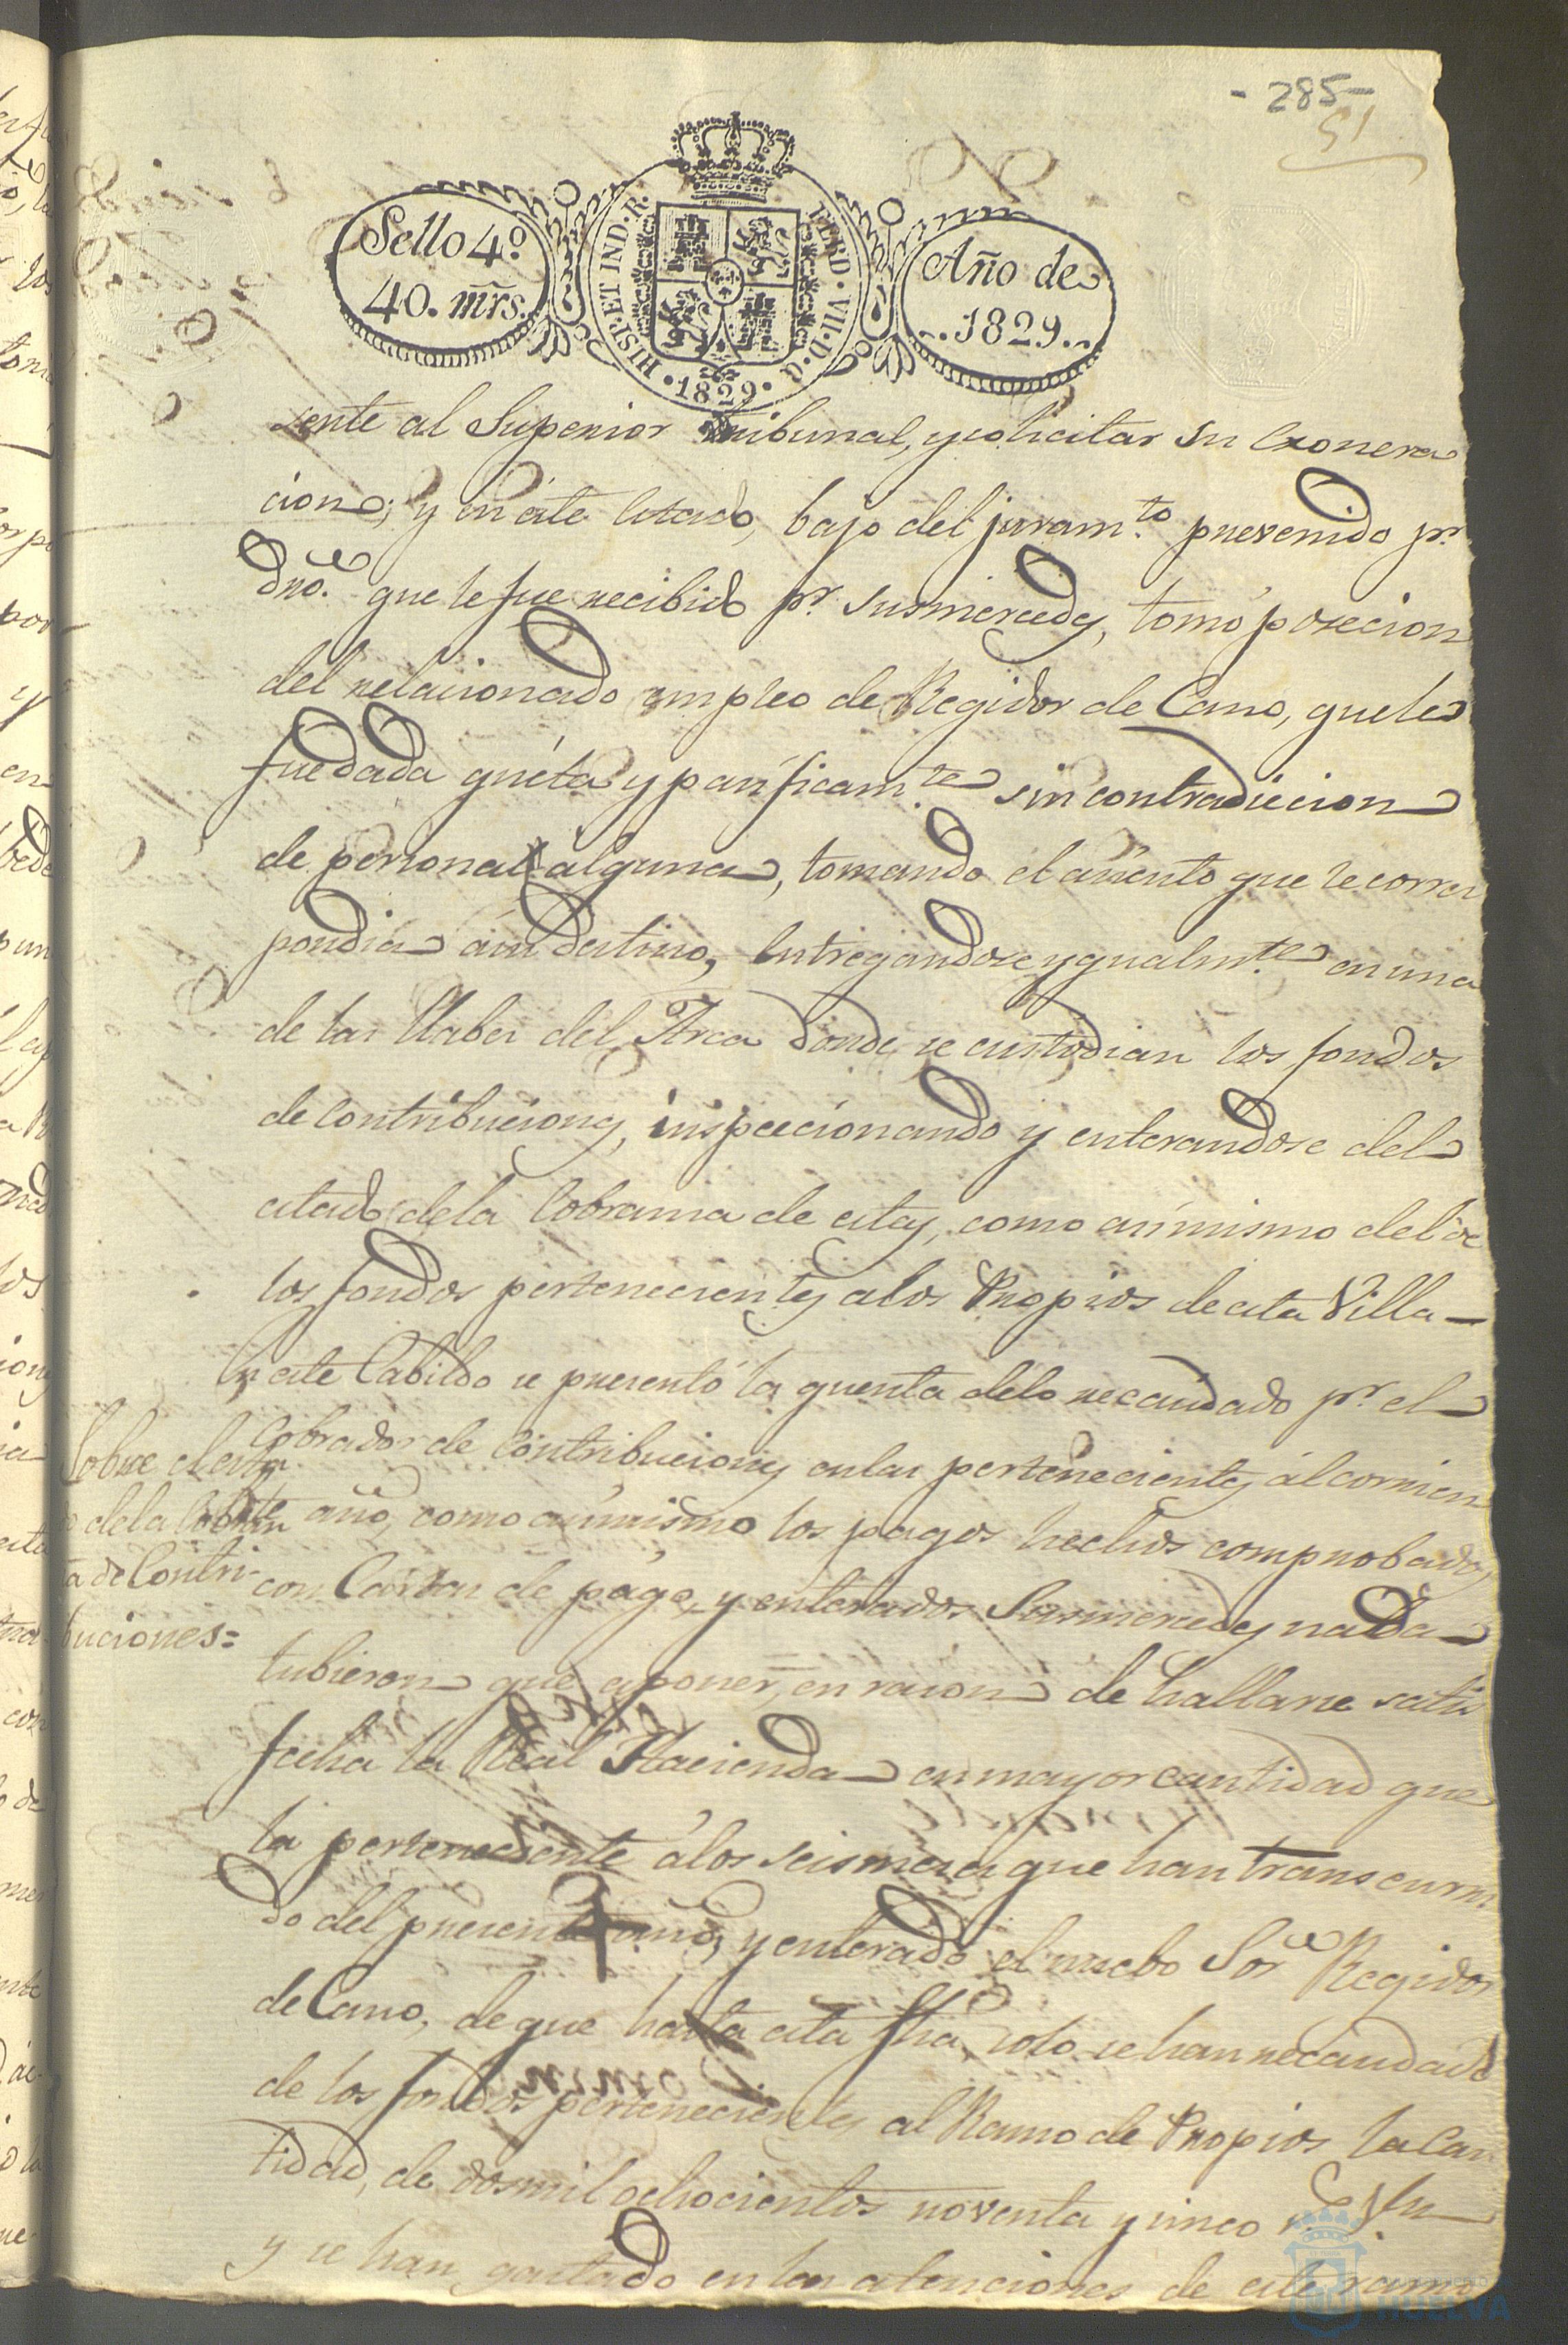 - 285 -
51
Sello 4º
40. mrs.
HISP. ET IND. R. FERD. VII. D. G.
· 1829 ·
Año de
1829
sente al Superior Tribunal, y solicitar su Exonera
cion; y en este estado, bajo del juram.to prevenido p.r
dro. que le fue recibido p.r susmercedes, tomó posecion
del relacionado empleo de Regidor de Cano, que le
fue dada quieta y pacificam.te sin contradiccion
de persona alguna, tomando el asiento que le corres
pondia á su destino, Entregandose ygualm.te en una
de las llabes del Arca donde se custodian los fondos
de Contribuciones, inspeccionando y enterandose del
estado de la Cobranza de estas, como asimismo del de
los fondos pertenecientes a los Propios de esta Villa —
En este Cabildo se presentó la quenta delo recaudado p.r el
Cobrador de Contribuciones en las pertenecientes al corrien
te año, como asimismo los pagos hechos comprobados
con Cartas de pago, y enterados Susmercedes nada
tubieron que oponer, en razon de hallarse satis
fecha la Real Hacienda en mayor cantidad que
la perteneciente á los seis meses que han transcurri
do del presente año, y enterado el nuebo Sor. Regidor
de Cano, de que hasta esta fha, solo se han recaudado
de los fondos pertenecientes al Ramo de Propios la Can
tidad, de dos mil ochocientos noventa y cinco r.s Vn
y se han gastado en las atenciones de este ramo
Sobre el esta
o de la Cobran
za de Contri-
buciones =
HUELVA